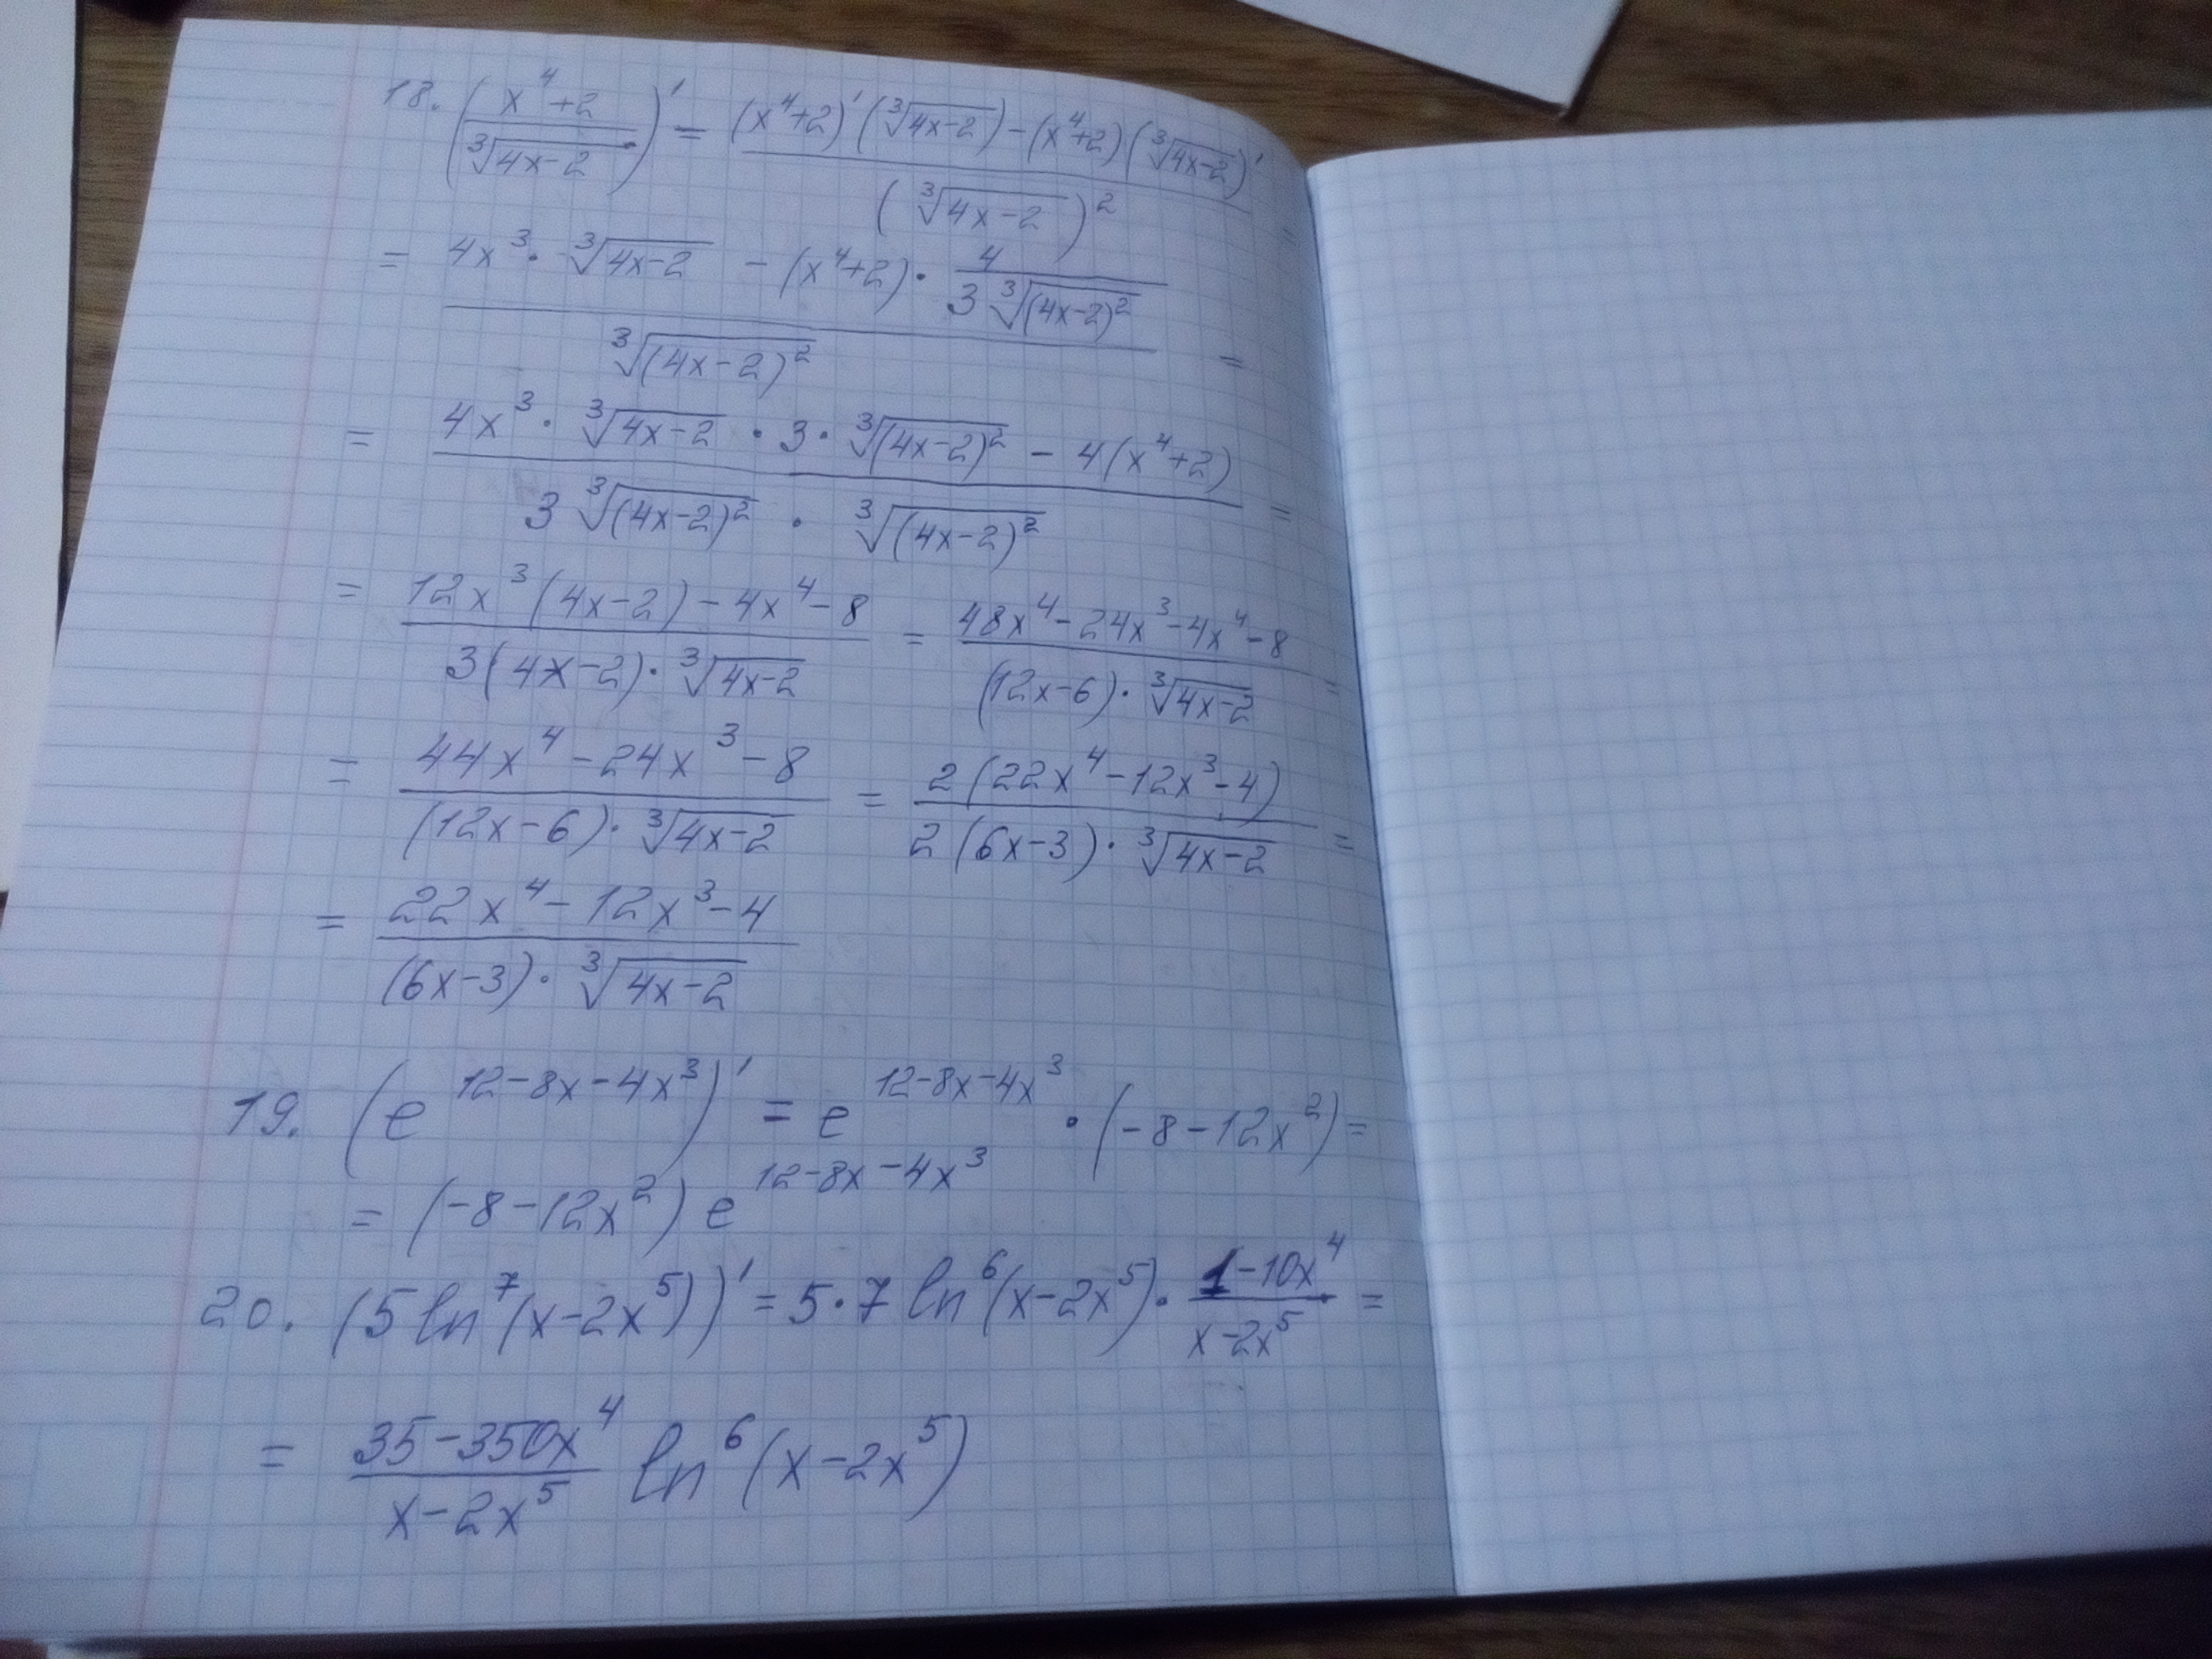 18. ( (x⁴+2) / ∛(4x-2) )' = ( (x⁴+2)' (∛(4x-2)) - (x⁴+2) (∛(4x-2))' ) / (∛(4x-2))² =
= ( 4x³ · ∛(4x-2) - (x⁴+2) · 4 / (3 ∛((4x-2)²)) ) / ∛((4x-2)²) =
= ( 4x³ · ∛(4x-2) · 3 · ∛((4x-2)²) - 4(x⁴+2) ) / ( 3 ∛((4x-2)²) · ∛((4x-2)²) ) =
= ( 12x³(4x-2) - 4x⁴ - 8 ) / ( 3(4x-2) · ∛(4x-2) ) = ( 48x⁴ - 24x³ - 4x⁴ - 8 ) / ( (12x-6) · ∛(4x-2) ) =
= ( 44x⁴ - 24x³ - 8 ) / ( (12x-6) · ∛(4x-2) ) = ( 2(22x⁴ - 12x³ - 4) ) / ( 2(6x-3) · ∛(4x-2) ) =
= ( 22x⁴ - 12x³ - 4 ) / ( (6x-3) · ∛(4x-2) )
19. (e^(12-8x-4x³))' = e^(12-8x-4x³) · (-8-12x²) =
= (-8-12x²) e^(12-8x-4x³)
20. (5 ln⁷(x-2x⁵))' = 5·7 ln⁶(x-2x⁵) · (1-10x⁴) / (x-2x⁵) =
= (35-350x⁴) / (x-2x⁵) ln⁶(x-2x⁵)